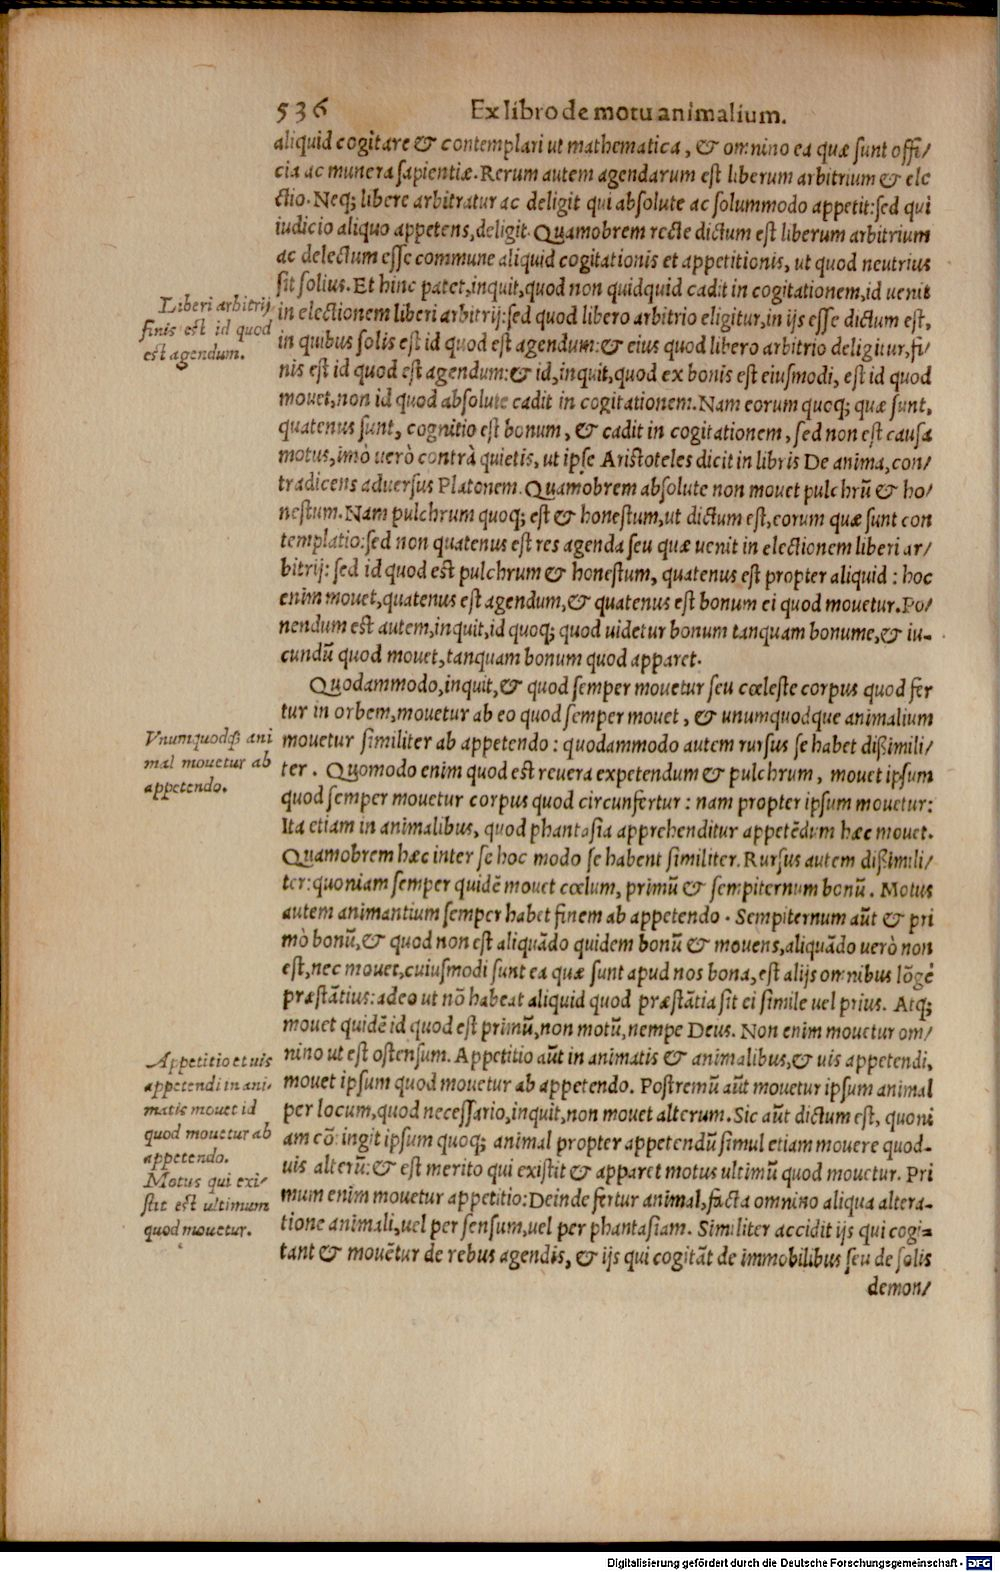 536 Ex libro de motu animalium.
aliquid cogitare & contemplari ut mathematica, & omnino ea quæ sunt offi/
cia ac munera sapientiæ. Rerum autem agendarum est liberum arbitrium & ele
ctio. Neq; libere arbitratur ac deligit qui absolute ac solummodo appetit: sed qui
iudicio aliquo appetens, deligit. Quamobrem recte dictum est liberum arbitrium
ac delectum esse commune aliquid cogitationis et appetitionis, ut quod neutrius
sit solius. Et hinc patet, inquit, quod non quidquid cadit in cogitationem, id uenit
Liberi arbitrij
finis est id quod
est agendum.
in electionem liberi arbitrij: sed quod libero arbitrio eligitur, in ijs esse dictum est,
in quibus solis est id quod est agendum: & eius quod libero arbitrio deligitur, fi/
nis est id quod est agendum: & id, inquit, quod ex bonis est eiusmodi, est id quod
mouet, non id quod absolute cadit in cogitationem. Nam eorum quoq; quæ sunt,
quatenus sunt, cognitio est bonum, & cadit in cogitationem, sed non est causa
motus, imò uerò contrà quietis, ut ipse Aristoteles dicit in libris De anima, con/
tradicens aduersus Platonem. Quamobrem absolute non mouet pulchrũ & ho/
nestum. Nam pulchrum quoq; est & honestum, ut dictum est, eorum quæ sunt con
templatio: sed non quatenus est res agenda seu quæ uenit in electionem liberi ar/
bitrij: sed id quod est pulchrum & honestum, quatenus est propter aliquid : hoc
enim mouet, quatenus est agendum, & quatenus est bonum ei quod mouetur. Po/
nendum est autem, inquit, id quoq; quod uidetur bonum tanquam bonume, & iu-
cundũ quod mouet, tanquam bonum quod apparet.
Quodammodo, inquit, & quod semper mouetur seu cœleste corpus quod fer
tur in orbem, mouetur ab eo quod semper mouet, & unumquodque animalium
Vnumquodq; ani
mal mouetur ab
appetendo.
mouetur similiter ab appetendo : quodammodo autem rursus se habet dißimili/
ter. Quomodo enim quod est reuera expetendum & pulchrum, mouet ipsum
quod semper mouetur corpus quod circunfertur : nam propter ipsum mouetur:
Ita etiam in animalibus, quod phantasia apprehenditur appetẽdum hæc mouet.
Quamobrem hæc inter se hoc modo se habent similiter. Rursus autem dißimili/
ter: quoniam semper quidẽ mouet cœlum, primũ & sempiternum bonũ. Motus
autem animantium semper habet finem ab appetendo. Sempiternum aũt & pri
mò bonũ, & quod non est aliquãdo quidem bonũ & mouens, aliquãdo uerò non
est, nec mouet, cuiusmodi sunt ea quæ sunt apud nos bona, est alijs omnibus lõgè
præstãtius: adeo ut nõ habeat aliquid quod præstãtia sit ei simile uel prius. Atq;
mouet quidẽ id quod est primũ, non motũ, nempe Deus. Non enim mouetur om/
nino ut est ostensum. Appetitio aũt in animatis & animalibus, & uis appetendi,
Appetitio et uis
appetendi in ani-
matis mouet id
quod mouetur ab
appetendo.
Motus qui exi/
stit est ultimum
quod mouetur.
mouet ipsum quod mouetur ab appetendo. Postremũ aũt mouetur ipsum animal
per locum, quod necessario, inquit, non mouet alterum. Sic aũt dictum est, quoni
am cõ ingit ipsum quoq; animal propter appetendũ simul etiam mouere quod-
uis alterũ: & est merito qui existit & apparet motus ultimũ quod mouetur. Pri
mum enim mouetur appetitio: Deinde fertur animal, facta omnino aliqua altera-
tione animali, uel per sensum, uel per phantasiam. Similiter accidit ijs qui cogi=
tant & mouẽtur de rebus agendis, & ijs qui cogitãt de immobilibus seu de solis
demon/
Digitalisierung gefördert durch die Deutsche Forschungsgemeinschaft - DFG